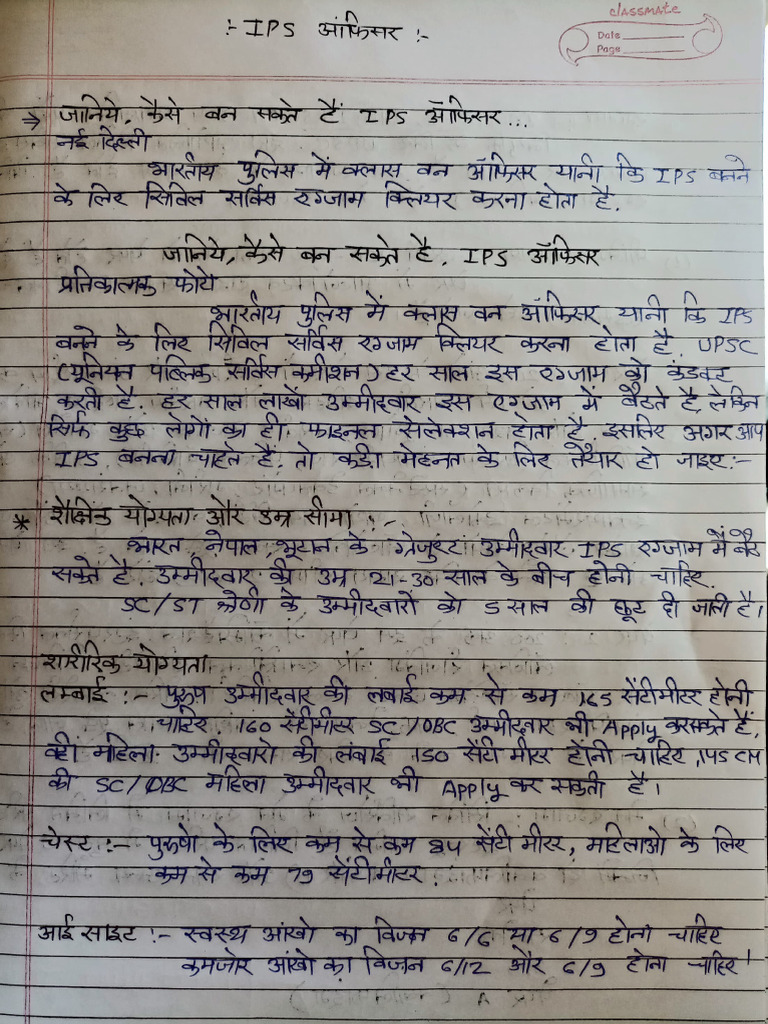 classmate
Date
Page
:- IPS ऑफिसर :-
→ जानिये, कैसे बन सकते हैं IPS ऑफिसर...
नई दिल्ली
भारतीय पुलिस में क्लास वन ऑफिसर यानी कि IPS बनने
के लिए सिविल सर्विस एग्जाम क्लियर करना होता है.
जानिये, कैसे बन सकते है. IPS ऑफिसर
प्रतिकात्मक फोटो
भारतीय पुलिस में क्लास वन ऑफिसर यानी कि IPS
बनने के लिए सिविल सर्विस एग्जाम क्लियर करना होता है UPSC
(यूनियन पब्लिक सर्विस कमीशन) हर साल इस एग्जाम को कंडक्ट
करती है. हर साल लाखों उम्मीदवार इस एग्जाम में बैठते है, लेकिन
सिर्फ कुछ लोगो का ही फाइनल सेलेक्शन होता है इसलिए अगर आप
IPS बनना चाहते है. तो कड़ी मेहनत के लिए तैयार हो जाइए:-
* शैक्षिक योग्यता और उम्र सीमा :-
भारत, नेपाल, भूटान के ग्रेजुएट उम्मीदवार IPS एग्जाम में बैठ
सकते है उम्मीदवार की उम्र 21-30 साल के बीच होनी चाहिए.
SC/ST श्रेणी के उम्मीदवारो को 5 साल की छूट दी जाती है।
शारीरिक योग्यता
लम्बाई :- पुरुष उम्मीदवार की लंबाई कम से कम 165 सेंटीमीटर होनी
चाहिए. 160 सेंटीमीटर SC/OBC उम्मीदवार भी Apply कर सकते हैं,
वही महिला उम्मीदवारो की लंबाई 150 सेंटी मीटर होनी चाहिए, 145 CM
की SC/OBC महिला उम्मीदवार भी Apply कर सकती है।
चेस्ट :- पुरुषो के लिए कम से कम 84 सेंटी मीटर, महिलाओ के लिए
कम से कम 79 सेंटीमीटर.
आई साइट :- स्वस्थ आंखो का विजन 6/6 या 6/9 होना चाहिए
कमजोर आंखो का विजन 6/12 और 6/9 होना चाहिए।